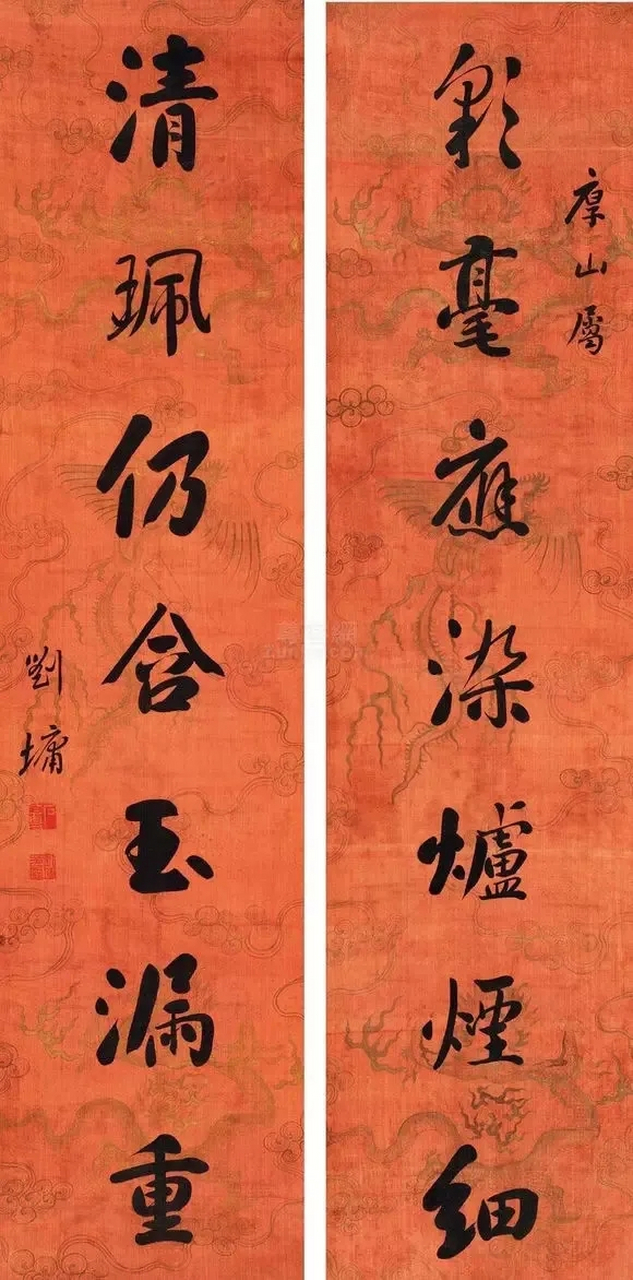 厚山屬
彩毫應染爐煙細
清珮仍含玉漏重
劉墉